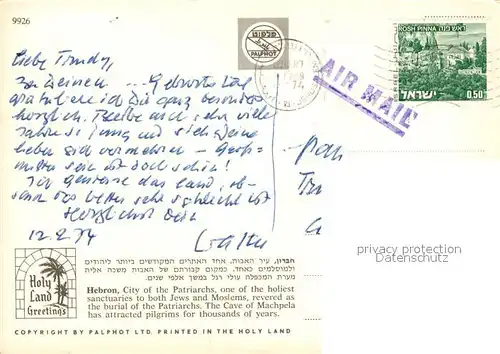 9926
פלפוט
PALPHOT
74
AIR MAIL
ROSH PINNA ראש פנה
ישראל 0.50
Liebe Trudy,
zu Deinem --- Geburtstag
gratuliere ich Dir ganz besonders
herzlich. Bleibe noch sehr viele
Jahre so jung und sieh Deine
lieben sich vermehren - Groß-
mutter sein ist doch schön!
Ich geniesse das Land, ob-
schon das Wetter sehr schlecht ist
Herzlichst Dein
12.2.74
privacy protection
Datenschutz
Holy
Land
Greetings
חברון, עיר האבות, אחד האתרים המקודשים ביותר ליהודים
ולמוסלמים כאחד. כמקום קבורתם של האבות משכה אליה
מערת המכפלה עולי רגל במשך אלפי שנים.
Hebron, City of the Patriarchs, one of the holiest
sanctuaries to both Jews and Moslems, revered as
the burial of the Patriarchs. The Cave of Machpela
has attracted pilgrims for thousands of years.
COPYRIGHT BY PALPHOT LTD. PRINTED IN THE HOLY LAND